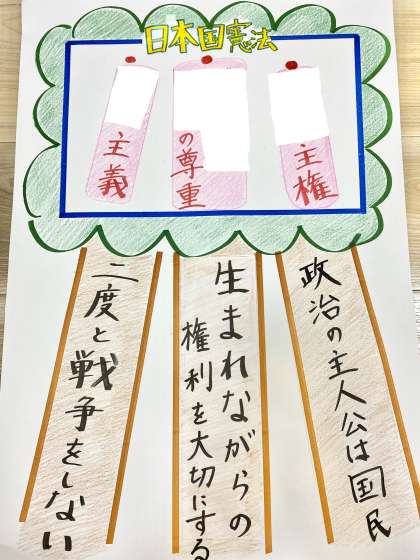 日本国憲法
主権
の尊重
主義
政治の主人公は国民
生まれながらの
権利を大切にする
二度と戦争をしない